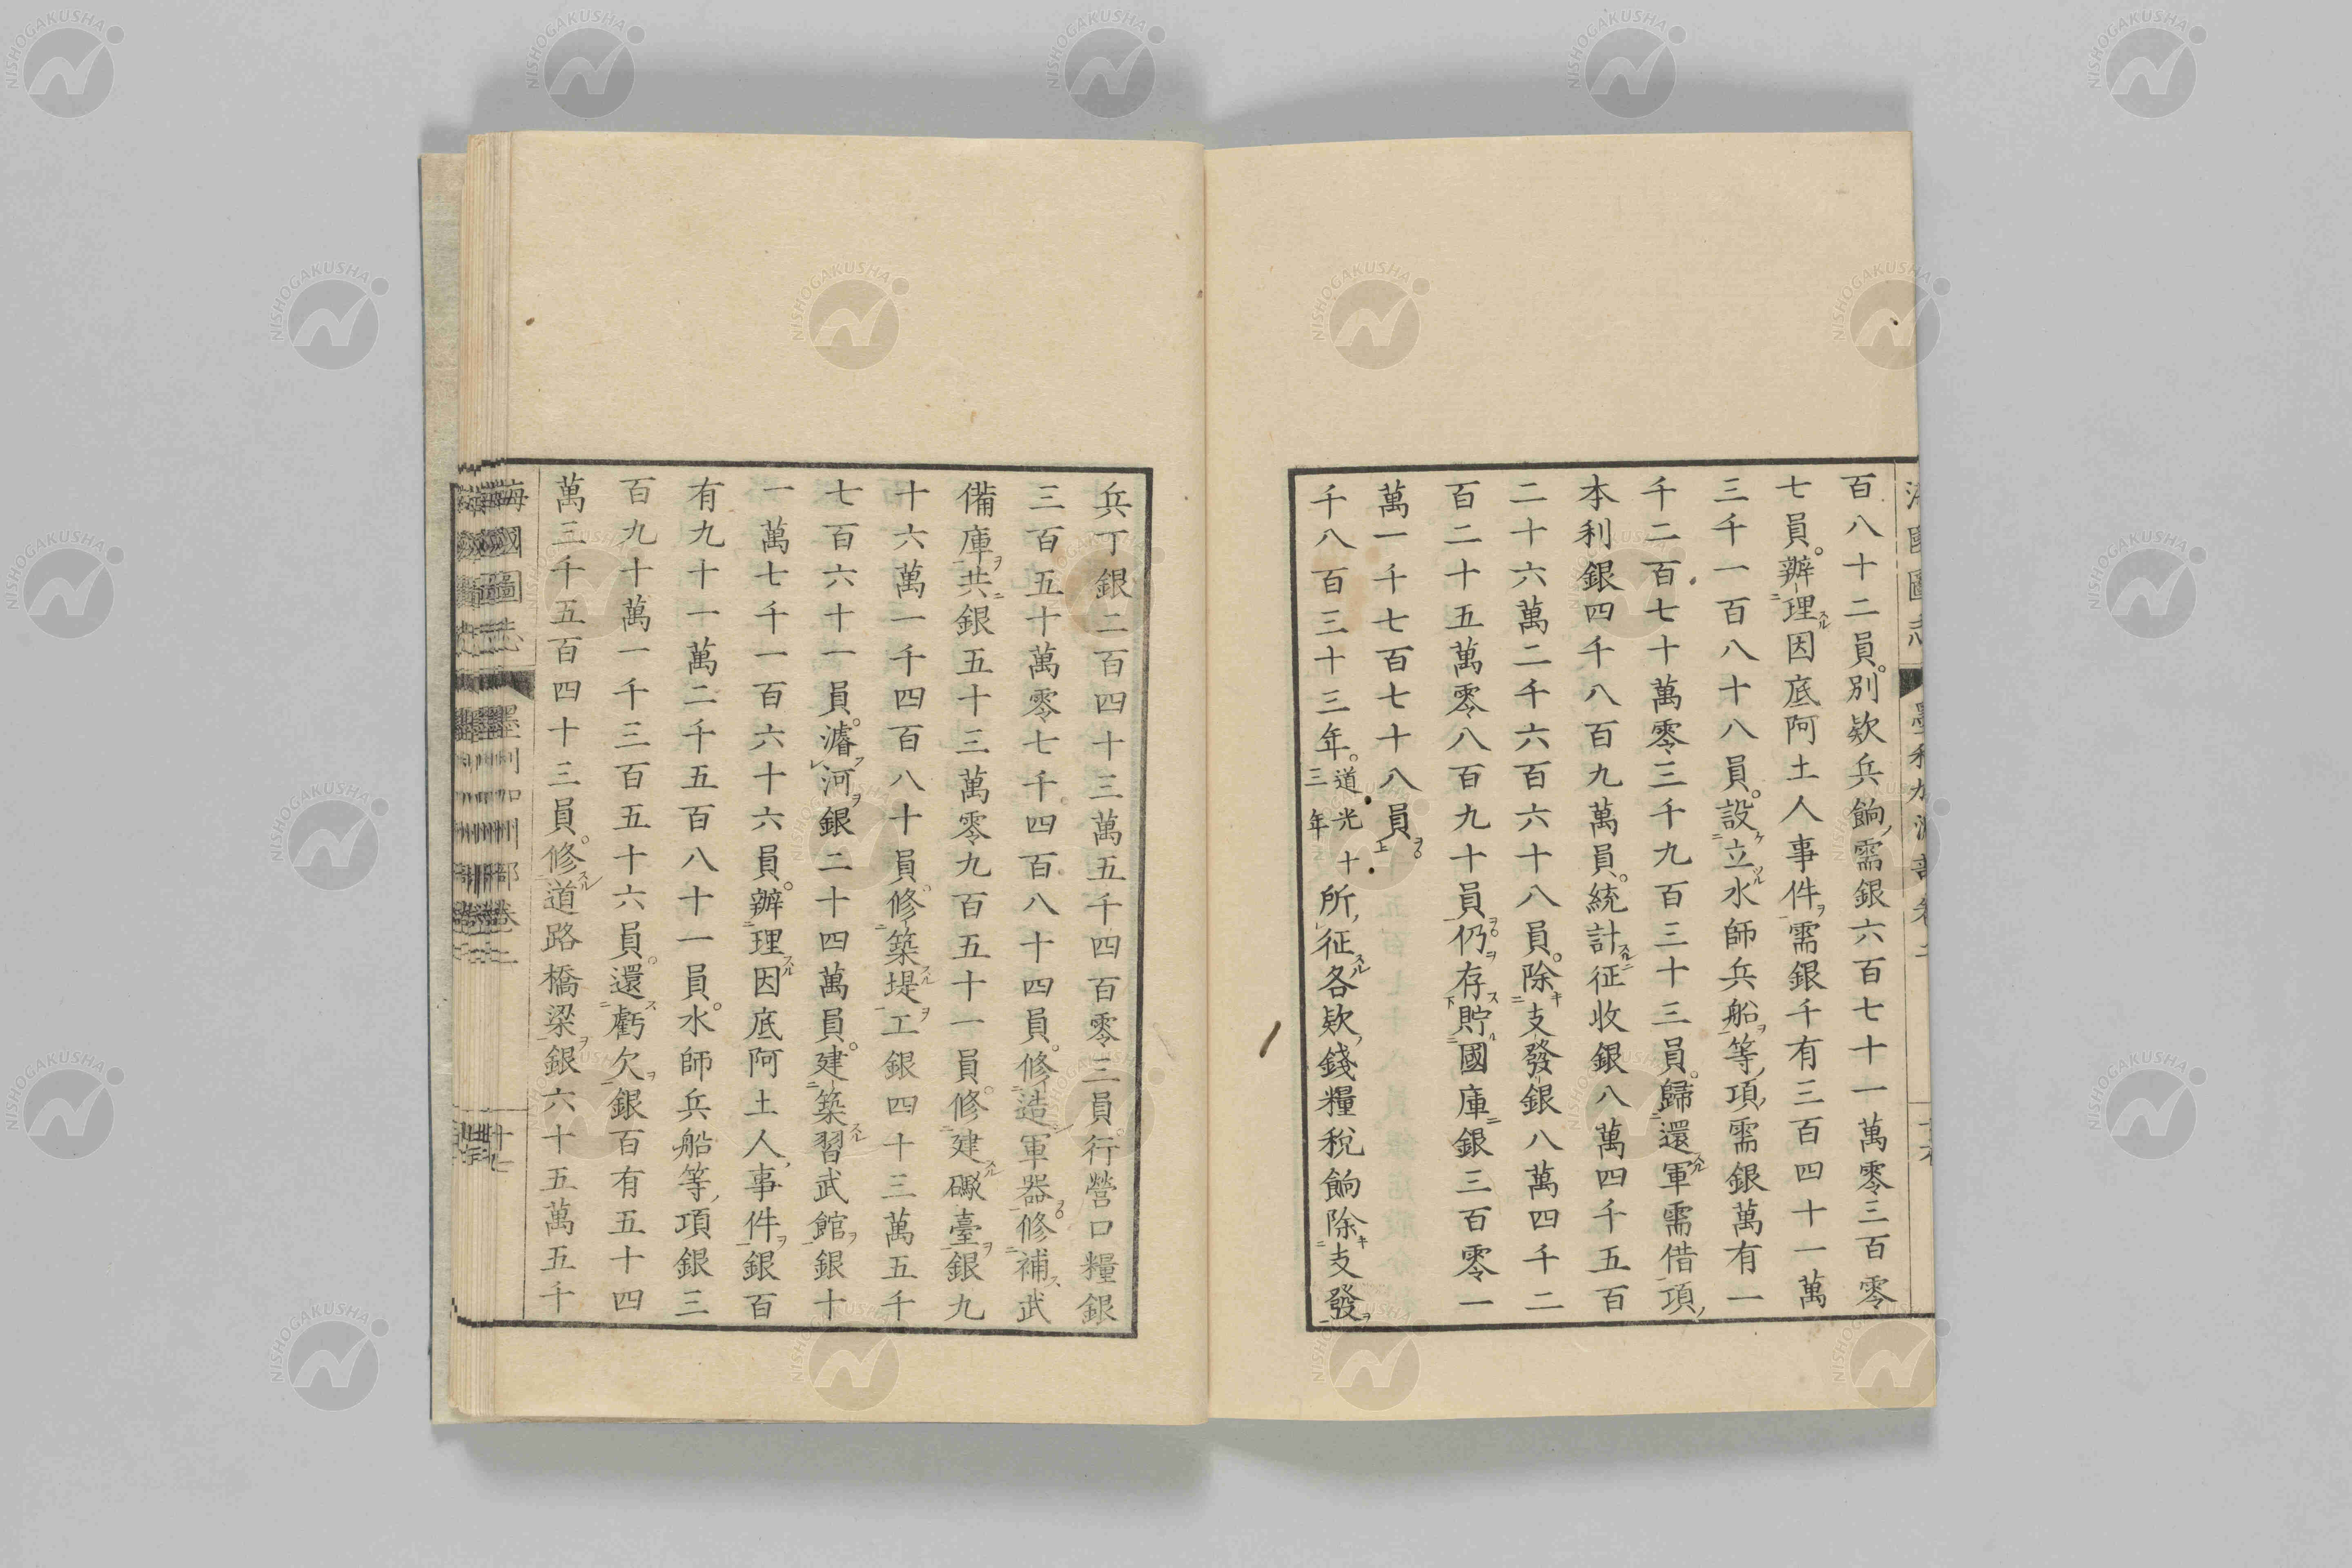 百八十二員。別欵兵餉、需銀六百七十一萬零三百零
七員。辦理因底阿土人事件、需銀千有三百四十一萬
三千一百八十八員。設立水師兵船等項、需銀萬有一
千二百七十萬零三千九百三十三員。歸還軍需借項、
本利銀四千八百九萬員。統計征收銀八萬四千五百
二十六萬二千六百六十八員。除支發銀八萬四千二
百二十五萬零八百九十員仍存貯國庫銀三百零一
萬一千七百七十八員
千八百三十三年。道光十三年所征各欵、錢糧稅餉除支發
兵丁銀二百四十三萬五千四百零三員。行營口糧銀
三百五十萬零七千四百八十四員。修造軍器修補武
備庫共銀五十三萬零九百五十一員。修建礮臺銀九
十六萬一千四百八十員。修築堤工銀四十三萬五千
七百六十一員。濬河銀二十四萬員。建築習武館銀十
一萬七千一百六十六員。辦理因底阿土人事件銀百
有九十一萬二千五百八十一員。水師兵船等項銀三
百九十萬一千三百五十六員。還虧欠銀百有五十四
萬三千五百四十三員。修道路橋梁銀六十五萬五千
海國圖志 墨利加州部卷二 十七
NISHOGAKUSHA